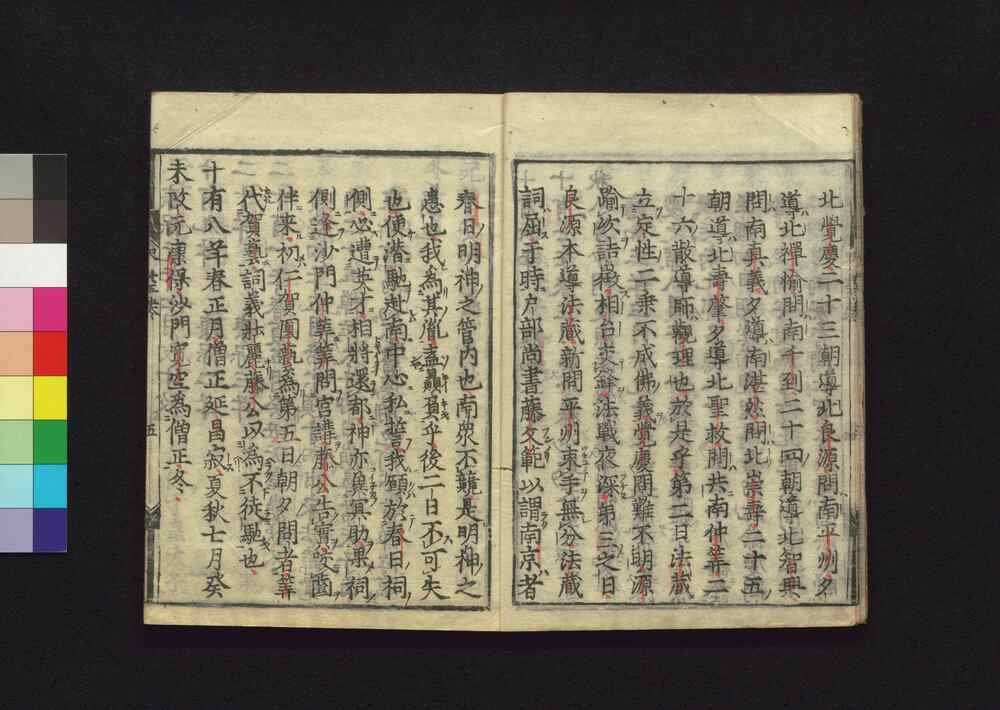 北覺慶二十三朝導北良源問南平州夕
導北禪愉問南千到二十四朝導北智興
問南真義夕導南湛然問北崇壽二十五
朝導北壽肇夕導北聖救問共南仲筭二
十六散導師觀理也於是乎第二日法藏
立定性二乘不成佛義覺慶問難不明源
踰次詰徴相台交鋒法戰夜深第三之日
良源本導法藏新問平州束手無分法藏
詞屈于時户部尚書藤文範以謂南京者
春日明神之管内也南衆不競是明神之
恚也我為其胤盍贔屓乎後二日不可失
也便潜馳赴南中心私誓我願放春日祠
側必遭英才相將還都神亦冀冥助果祠
側逢沙門仲筭筭問官講藤公告實咬囓
伴来初仁賀圓藝為第五日朝夕問者筭
代賀藝詞義壯麗藤公以為不徒馳也
十有八年春正月僧正延昌寂夏秋七月癸
未改元康保沙門寛空為僧正冬
五